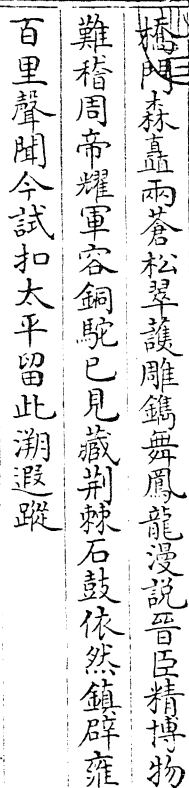 橋門森矗兩蒼松翠護雕鐫舞鳳龍漫說晉臣精博物
難稽周帝耀軍容銅駝已見藏荆棘石鼓依然鎮辟雍
百里聲聞今試扣太平留此溯遐蹤